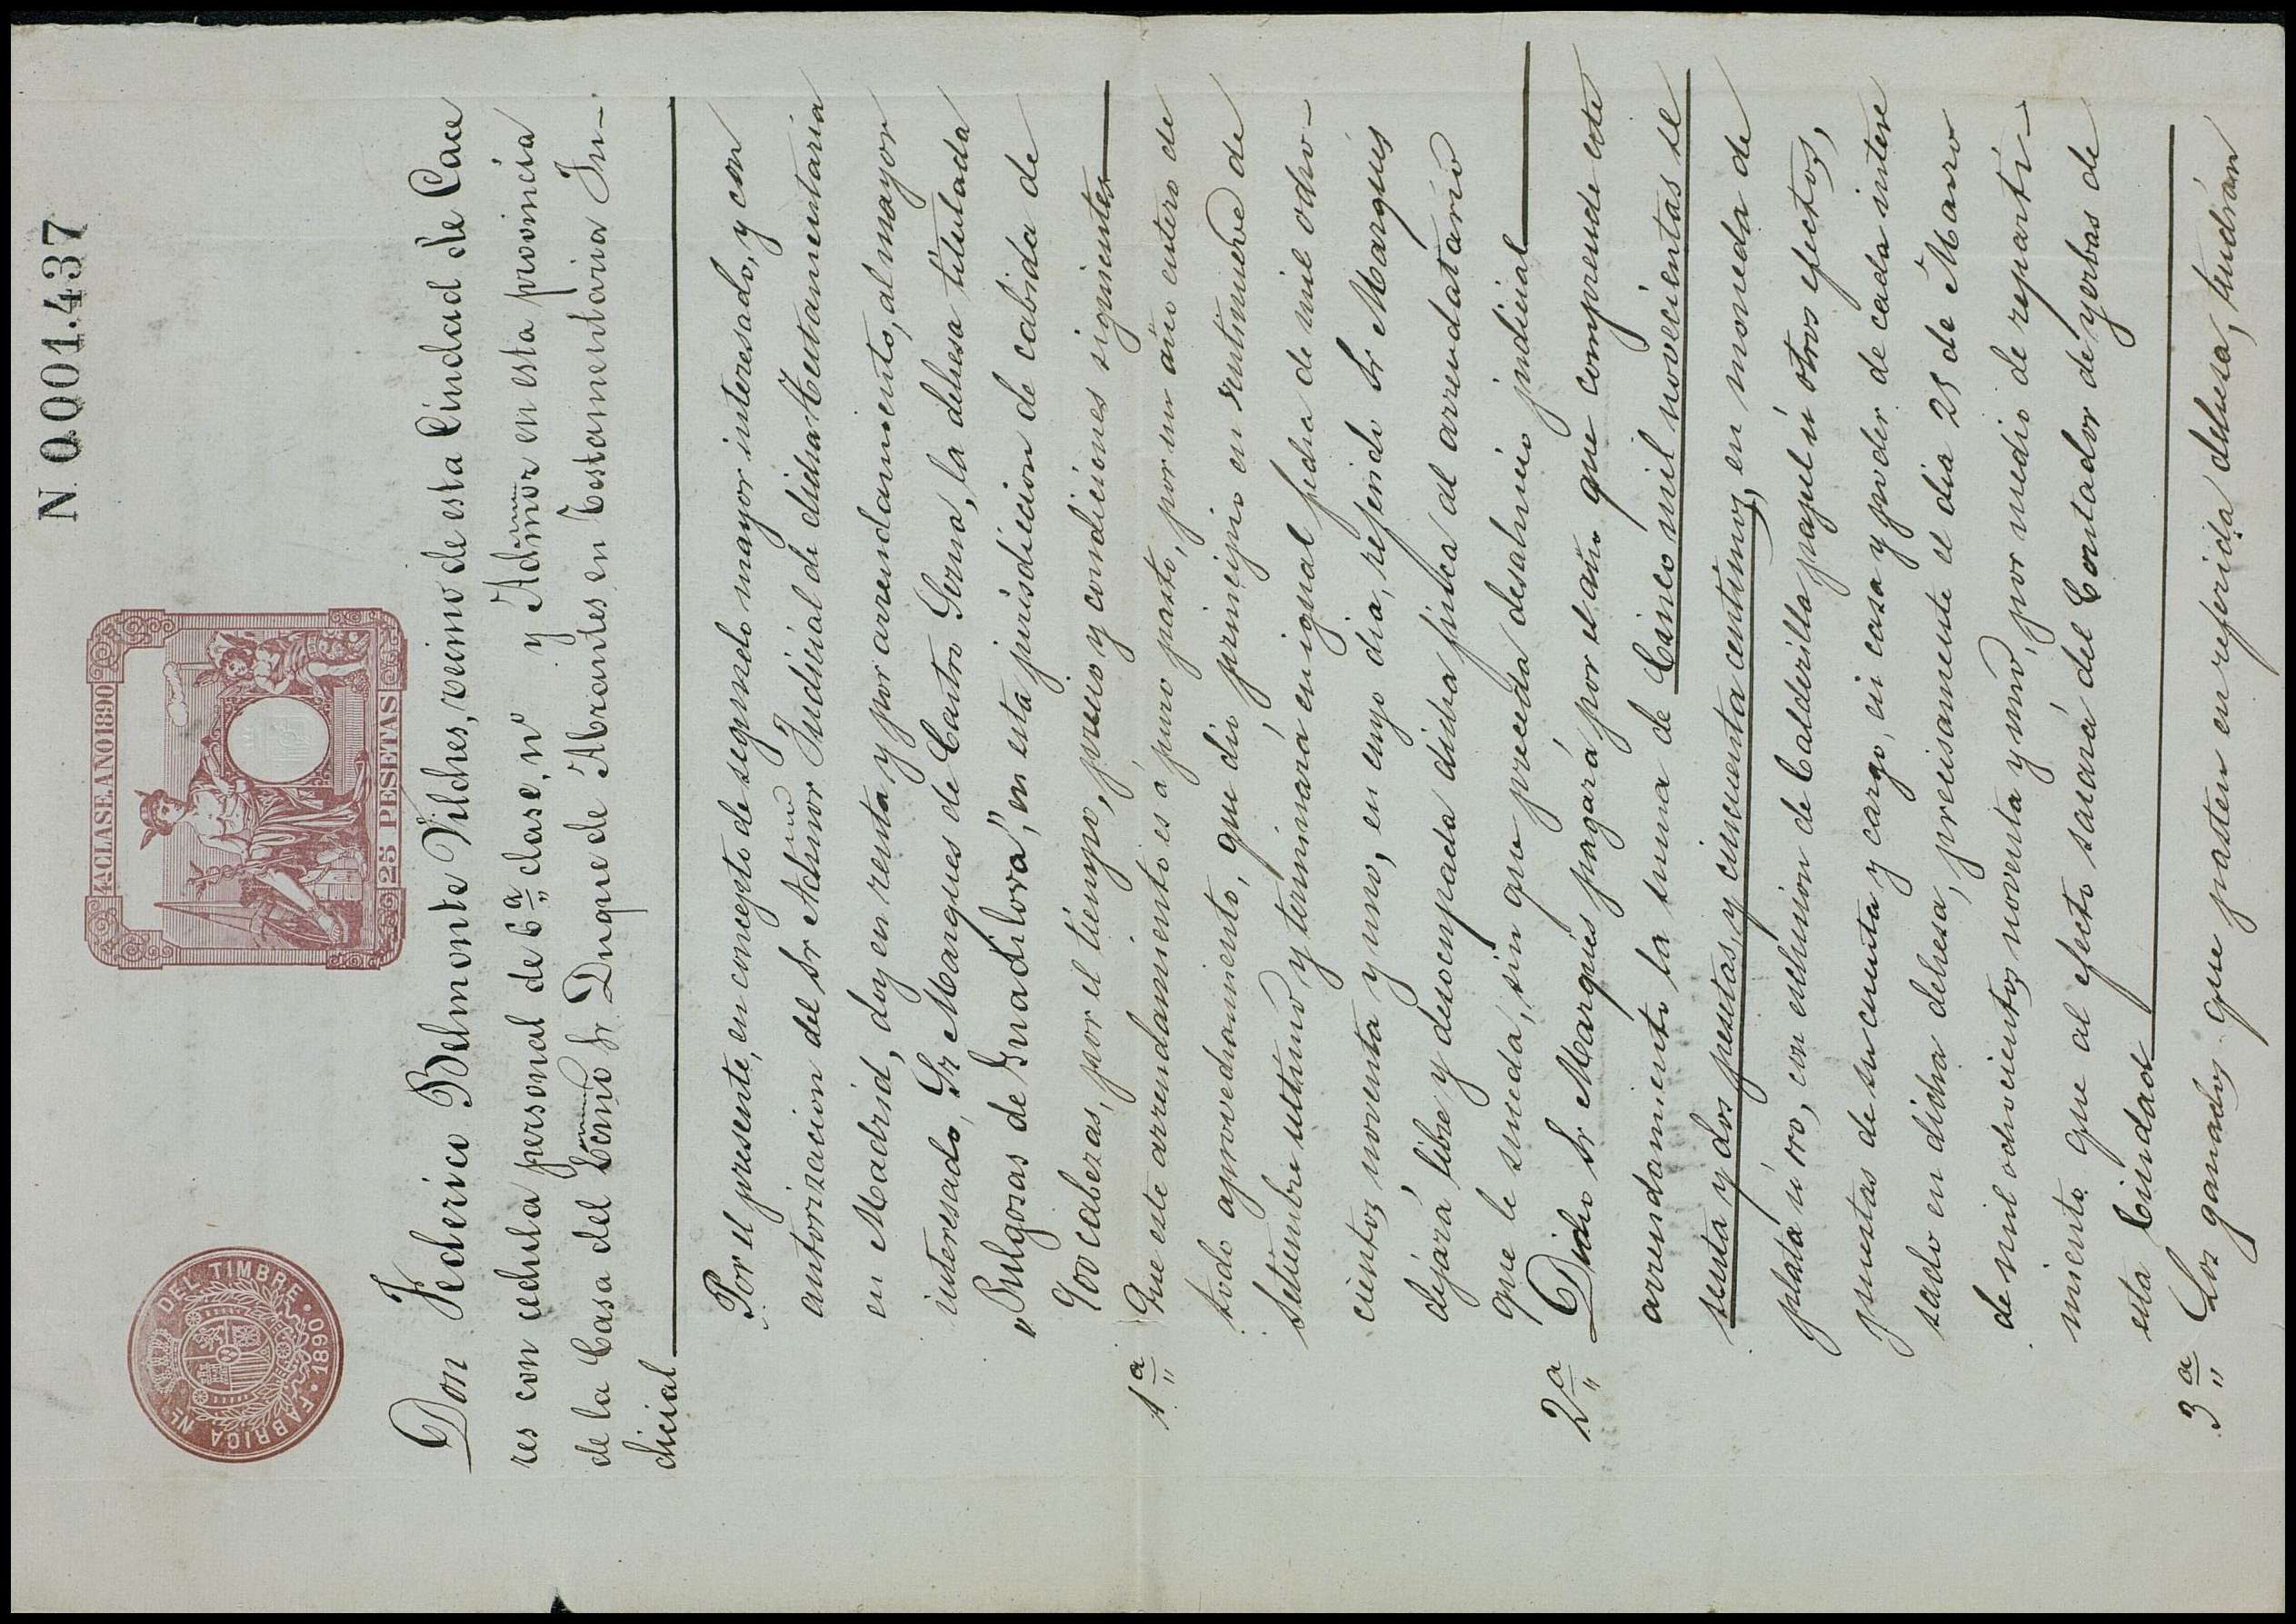 N. 0.001.437
4ª CLASE. AÑO 1890
25 PESETAS
FABRICA NL. DEL TIMBRE · 1890 ·
Don Federico Belmonte Vilches, vecino de esta Ciudad de Cáce
res con cedula personal de 6ª clase, nº y Admor en esta provincia
de la Casa del Ecmo Sr. Duque de Abrantes en Testamentaria Ju-
dicial
Por el presente, en concepto de segundo mayor interesado, y con
autorizacion del Sr Admor Judicial de dicha Testamentaria
en Madrid, doy en renta y por arrendamiento, al mayor
interesado, Sr Marques de Castro Serna, la dehesa titulada
"Pulgosas de Guadilova", en esta jurisdiccion de cabida de
900 cabezas, por el tiempo, precio y condiciones siguientes
1ª Que este arrendamiento es á puro pasto, por un año entero de
todo aprovechamiento, que dió principio en veintinueve de
Setiembre ultimo, y terminará en igual fecha de mil ocho-
cientos noventa y uno, en cuyo dia, referido Sr Marqués
dejará libre y desocupada dicha finca al arrendatario
que le suceda, sin que preceda desahucio judicial
2ª Dicho Sr Marqués pagará por el año que comprende este
arrendamiento la suma de Cinco mil novecientas se
senta y dos pesetas, y cincuenta centimos, en moneda de
plata ú oro, con esclusion de Calderilla papel ú otros efectos,
puestas de su cuenta y cargo, en casa y poder de cada intere
sado en dicha dehesa, precisamente el dia 25 de Marzo
de mil ochocientos noventa y uno, por medio de reparti-
miento que al efecto sacará del Contador de yerbas de
esta Ciudad
3ª Los ganados que pasten en referida dehesa, tendrán